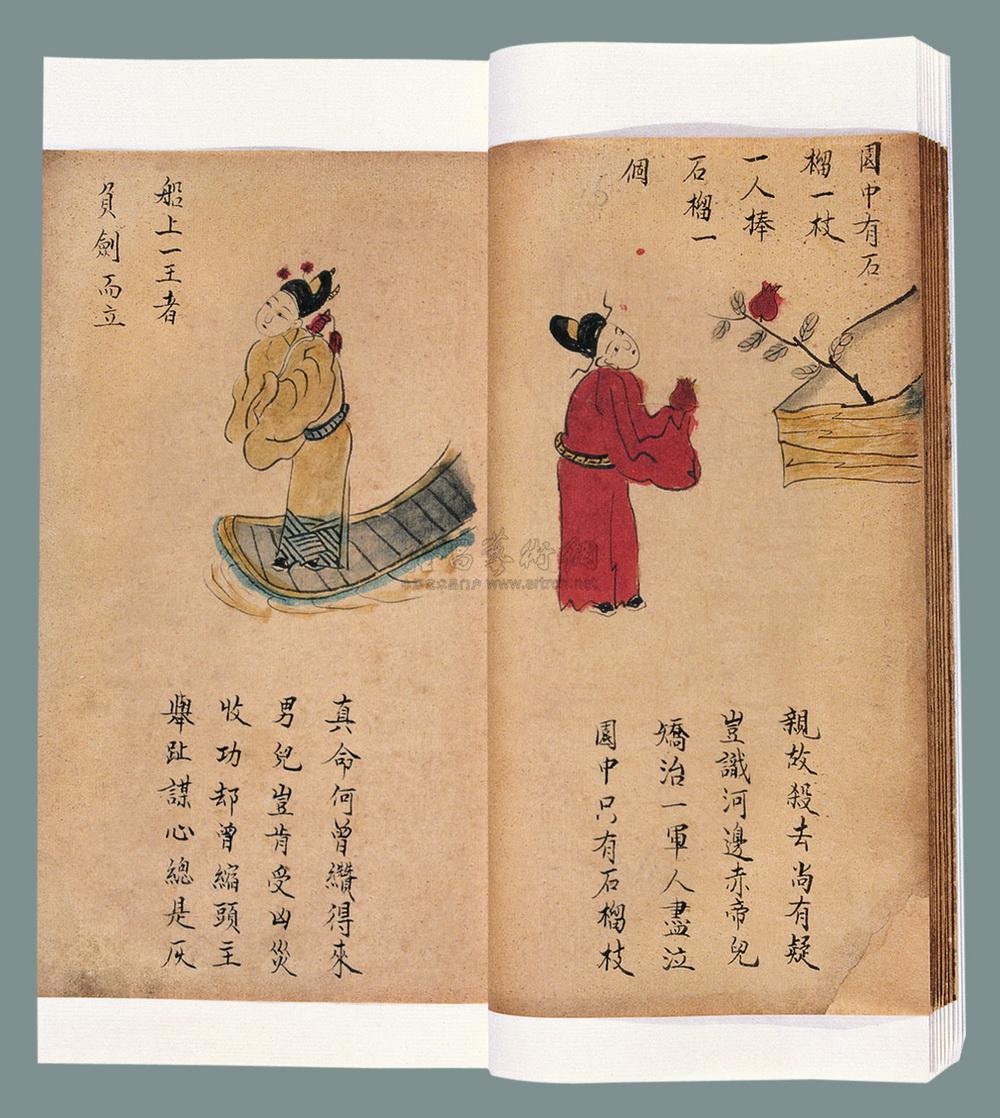 園中有石
榴一枝
一人捧
石榴一
個
親故殺去尚有疑
豈識河邊赤帝兒
矯治一軍人盡泣
園中只有石榴枝
船上一王者
負劍而立
真命何曾纘得來
男兒豈肯受凶災
收功却曾縮頭主
舉趾謀心總是灰
昌藝術網
www.artron.net